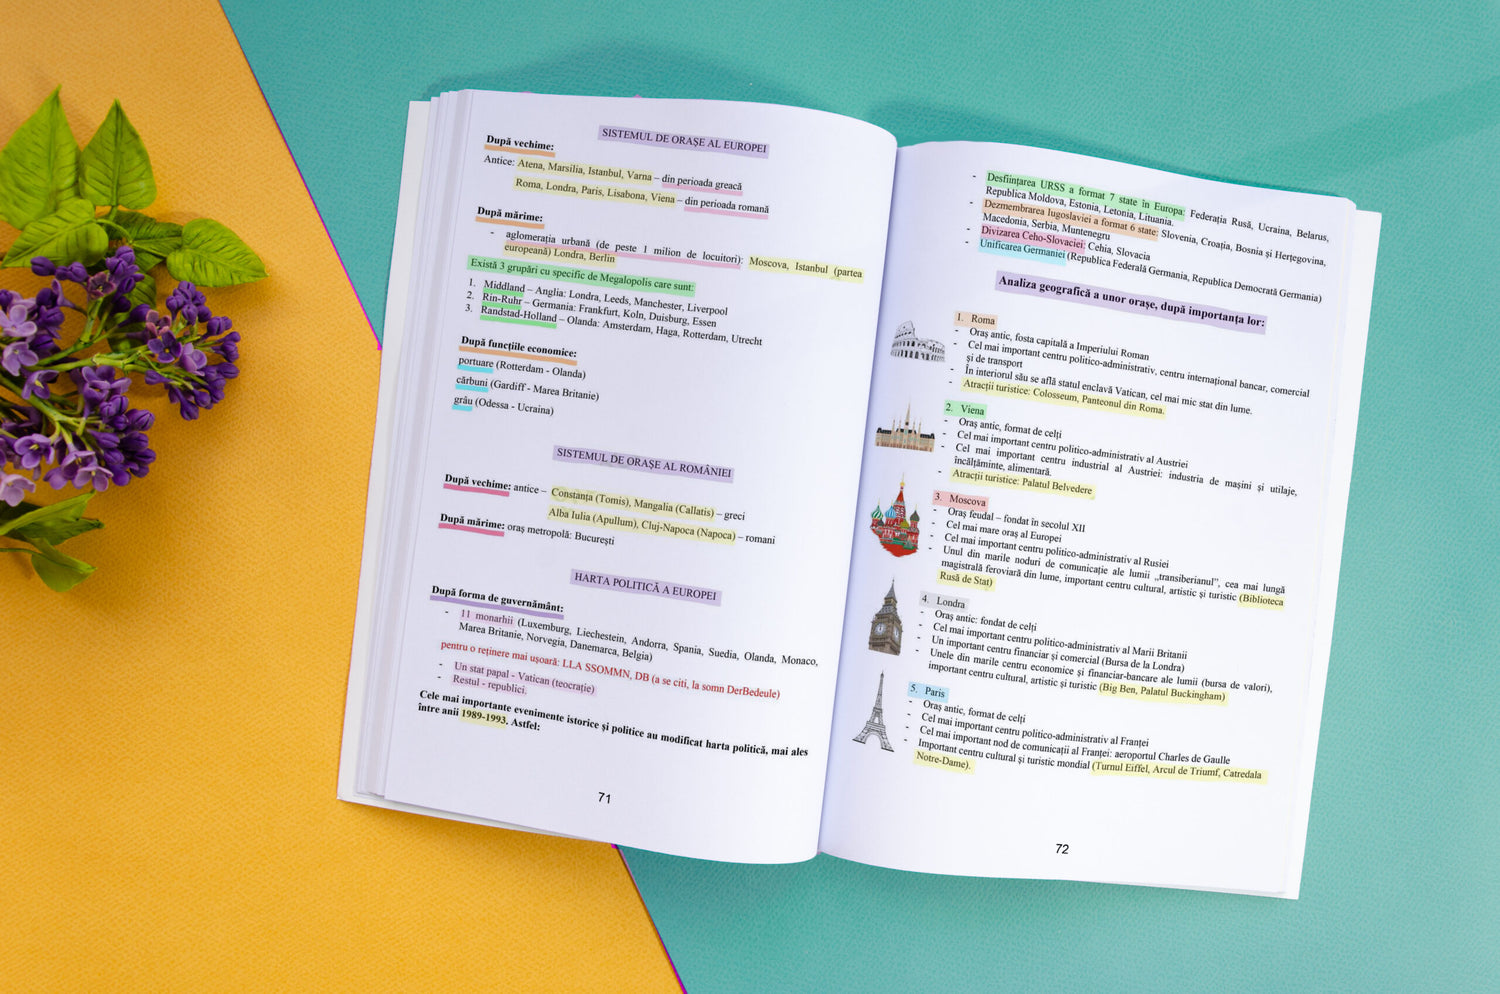 SISTEMUL DE ORAȘE AL EUROPEI
După vechime:
Antice: Atena, Marsilia, Istanbul, Varna – din perioada greacă
Roma, Londra, Paris, Lisabona, Viena – din perioada romană
După mărime:
- aglomerația urbană (de peste 1 milion de locuitori): Moscova, Istanbul (partea
europeană) Londra, Berlin
Există 3 grupări cu specific de Megalopolis care sunt:
1. Middland – Anglia: Londra, Leeds, Manchester, Liverpool
2. Rin-Ruhr – Germania: Frankfurt, Koln, Duisburg, Essen
3. Randstad-Holland – Olanda: Amsterdam, Haga, Rotterdam, Utrecht
După funcțiile economice:
portuare (Rotterdam - Olanda)
cărbuni (Gardiff - Marea Britanie)
grâu (Odessa - Ucraina)
SISTEMUL DE ORAȘE AL ROMÂNIEI
După vechime: antice – Constanța (Tomis), Mangalia (Callatis) – greci
Alba Iulia (Apullum), Cluj-Napoca (Napoca) – romani
După mărime: oraș metropolă: București
HARTA POLITICĂ A EUROPEI
După forma de guvernământ:
- 11 monarhii (Luxemburg, Liechestein, Andorra, Spania, Suedia, Olanda, Monaco,
Marea Britanie, Norvegia, Danemarca, Belgia)
pentru o reține mai ușoară: LLA SSOMMN, DB (a se citi, la somn DerBedeule)
- Un stat papal - Vatican (teocrație)
- Restul - republici.
Cele mai importante evenimente istorice și politice au modificat harta politică, mai ales
între anii 1989-1993. Astfel:
71
- Desființarea URSS a format 7 state în Europa: Federația Rusă, Ucraina, Belarus,
Republica Moldova, Estonia, Letonia, Lituania.
- Dezmembrarea Iugoslaviei a format 6 state: Slovenia, Croația, Bosnia și Herțegovina,
Macedonia, Serbia, Muntenegru
- Divizarea Ceho-Slovaciei: Cehia, Slovacia
- Unificarea Germaniei (Republica Federală Germania, Republica Democrată Germania)
Analiza geografică a unor orașe, după importanța lor:
1. Roma
- Oraș antic, fosta capitală a Imperiului Roman
- Cel mai important centru politico-administrativ, centru internațional bancar, comercial
și de transport
- În interiorul său se află statul enclavă Vatican, cel mai mic stat din lume.
- Atracții turistice: Colosseum, Panteonul din Roma.
2. Viena
- Oraș antic, format de celți
- Cel mai important centru politico-administrativ al Austriei
- Cel mai important centru industrial al Austriei: industria de mașini și utilaje,
încălțăminte, alimentară.
- Atracții turistice: Palatul Belvedere
3. Moscova
- Oraș feudal – fondat în secolul XII
- Cel mai mare oraș al Europei
- Cel mai important centru politico-administrativ al Rusiei
- Unul din marile noduri de comunicație ale lumii „transiberianul”, cea mai lungă
magistrală feroviară din lume, important centru cultural, artistic și turistic (Biblioteca
Rusă de Stat)
4. Londra
- Oraș antic: fondat de celți
- Cel mai important centru politico-administrativ al Marii Britanii
- Un important centru financiar și comercial (Bursa de la Londra)
- Unele din marile centru economice și financiar-bancare ale lumii (bursa de valori),
important centru cultural, artistic și turistic (Big Ben, Palatul Buckingham)
5. Paris
- Oraș antic, format de celți
- Cel mai important centru politico-administrativ al Franței
- Cel mai important nod de comunicații al Franței: aeroportul Charles de Gaulle
- Important centru cultural și turistic mondial (Turnul Eiffel, Arcul de Triumf, Catredala
Notre-Dame).
72